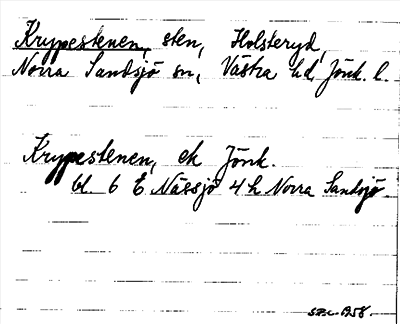 Krypestenen, sten, Holsteryd,
Norra Sandsjö sn, Västra hd, Jönk. l.
Krypestenen, ek Jönk.
bl. 6 E Nässjö 4 h Norra Sandsjö.
1958.